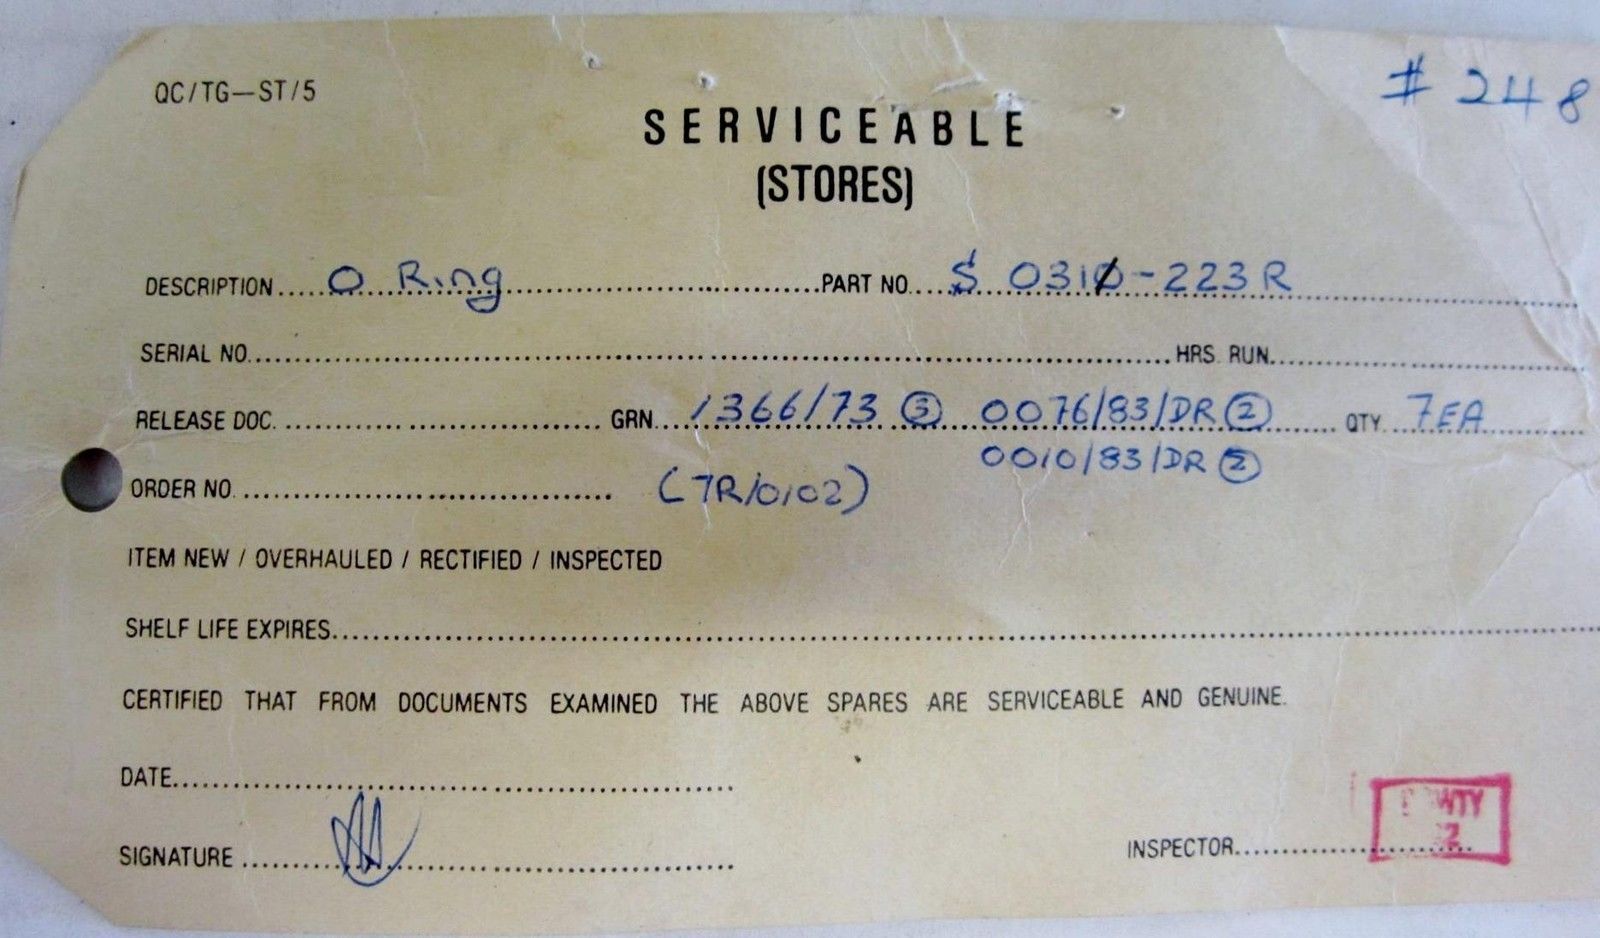 QC/TG—ST/5
# 248
SERVICEABLE
(STORES)
DESCRIPTION.....O Ring.....PART NO.....S 0310-223R
SERIAL NO..........HRS. RUN..........
RELEASE DOC........... GRN....1366/73 (3) 0076/83/DR (2)..... QTY...7EA
0010/83/DR (2)
ORDER NO........... (7R/0102)
ITEM NEW / OVERHAULED / RECTIFIED / INSPECTED
SHELF LIFE EXPIRES..........
CERTIFIED THAT FROM DOCUMENTS EXAMINED THE ABOVE SPARES ARE SERVICEABLE AND GENUINE.
DATE..........
SIGNATURE ..........
INSPECTOR..........